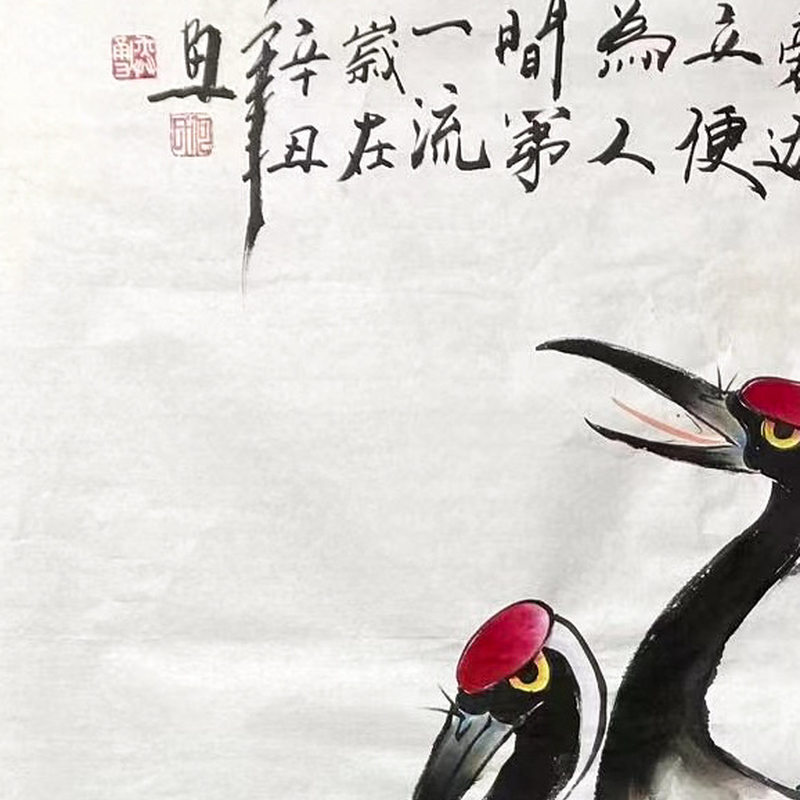 立便
為人
間第
一流
歲在
辛丑